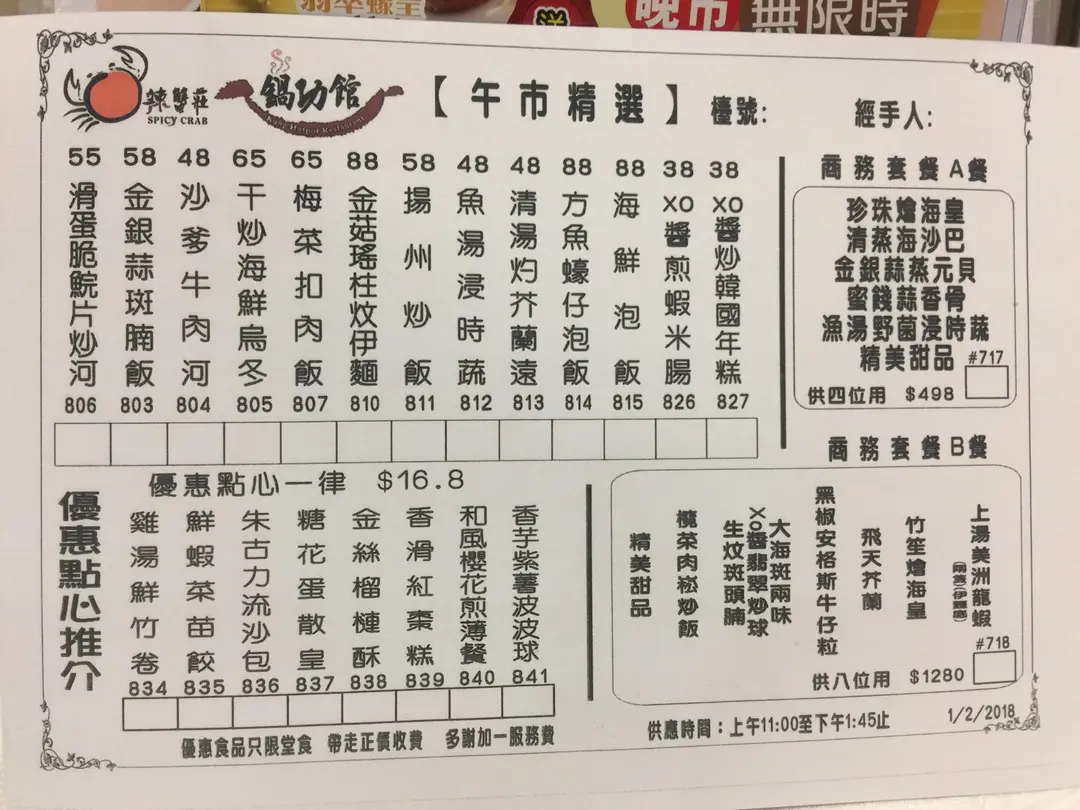 晚市 無限時
辣蟹莊
SPICY CRAB
鍋功館
【午市精選】
檯號:
經手人:
55 滑蛋脆鯇片炒河 806
58 金銀蒜斑腩飯 803
48 沙爹牛肉河 804
65 干炒海鮮烏冬 805
65 梅菜扣肉飯 807
88 金菇瑤柱炆伊麵 810
58 揚州炒飯 811
48 魚湯浸時蔬 812
48 清湯灼芥蘭遠 813
88 方魚蠔仔泡飯 814
88 海鮮泡飯 815
38 XO醬煎蝦米腸 826
38 XO醬炒韓國年糕 827
商務套餐A餐
珍珠燴海皇
清蒸海沙巴
金銀蒜蒸元貝
蜜餞蒜香骨
漁湯野菌浸時蔬
精美甜品
#717
供四位用 $498
商務套餐B餐
上湯美洲龍蝦
竹笙燴海皇
飛天芥蘭
黑椒安格斯牛仔粒
大海斑兩味
XO醬翡翠炒球
生炆斑頭腩
欖菜肉崧炒飯
精美甜品
#718
供八位用 $1280
優惠點心推介
優惠點心一律 $16.8
雞湯鮮竹卷 834
鮮蝦菜苗餃 835
朱古力流沙包 836
糖花蛋散皇 837
金絲榴槤酥 838
香滑紅棗糕 839
和風櫻花煎薄餐 840
香芋紫薯波波球 841
優惠食品只限堂食 帶走正價收費 多謝加一服務費
供應時間：上午11:00至下午1:45止
1/2/2018